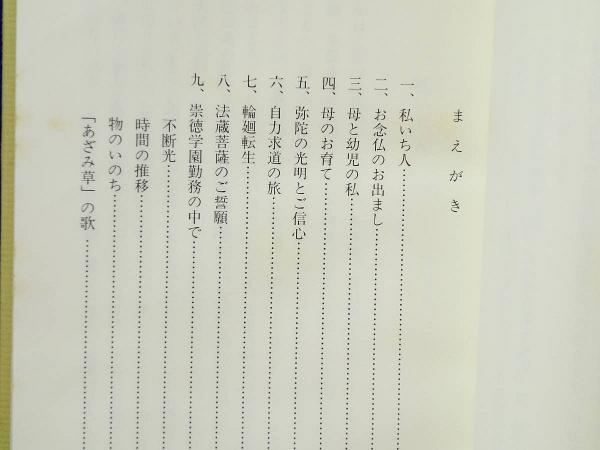 まえがき
一、私いち人
二、お念仏のお出まし
三、母と幼児の私
四、母のお育て
五、弥陀の光明とご信心
六、自力求道の旅
七、輪廻転生
八、法蔵菩薩のご誓願
九、崇德学園勤務の中で
不断光
時間の推移
物のいのち
「あざみ草」の歌